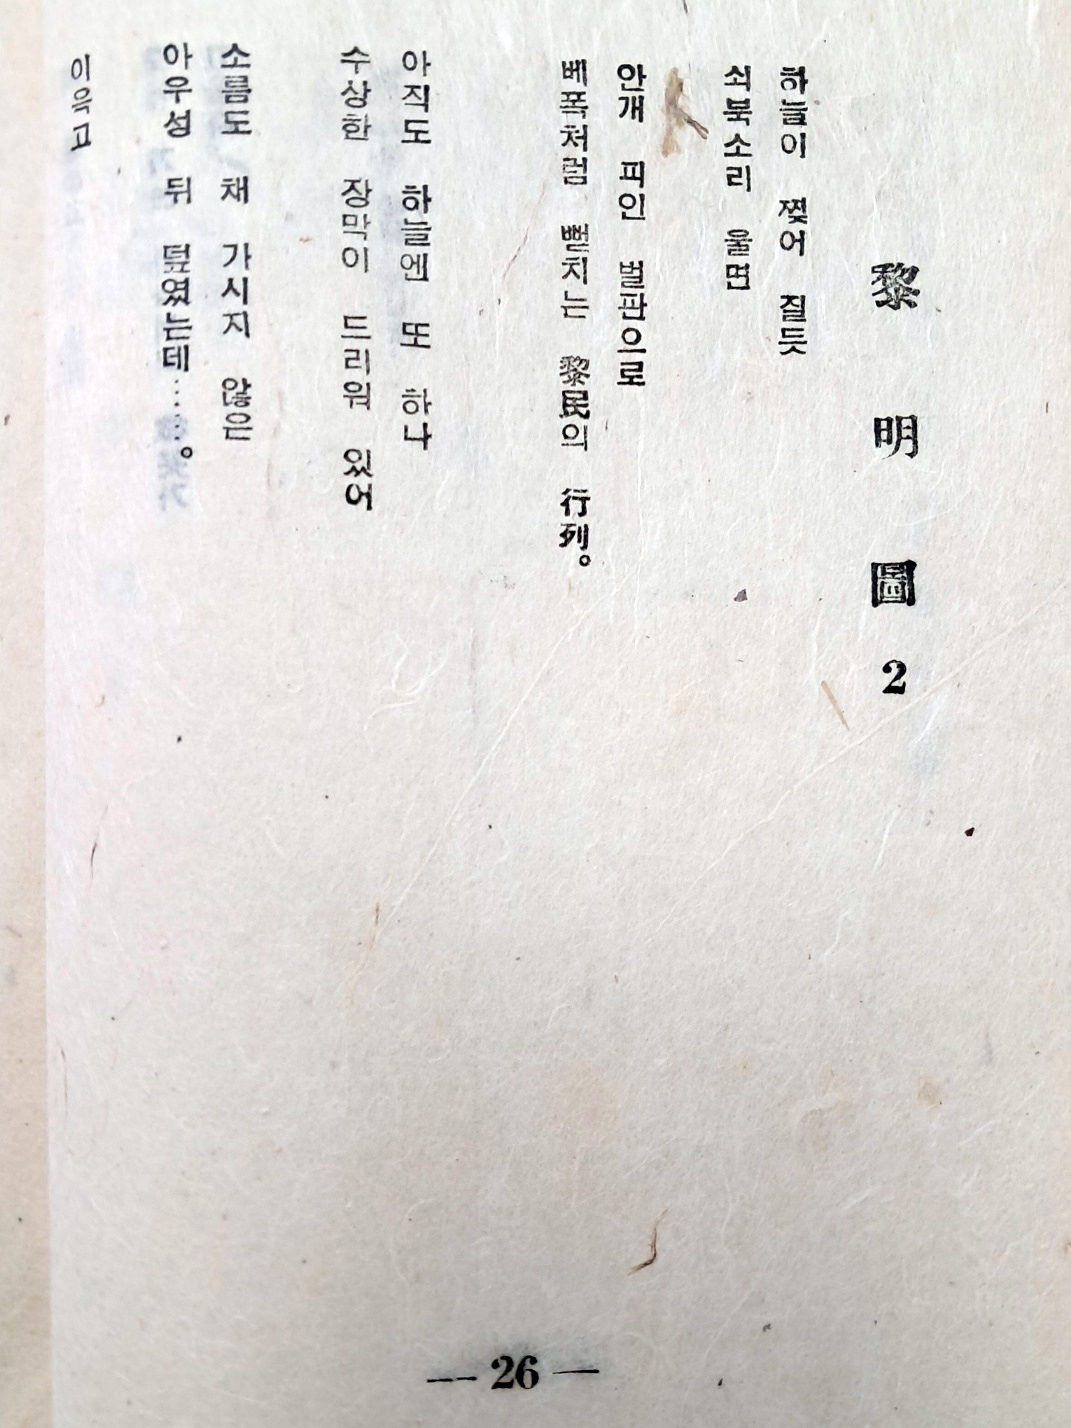 黎明圖 2
하늘이 찢어 질듯
쇠북소리 울면
안개 피인 벌판으로
베폭처럼 뻗치는 黎民의 行列。
아직도 하늘엔 또 하나
수상한 장막이 드리워 있어
소름도 채 가시지 않은
아우성 뒤 덮였는데……。
이윽고
— 26 —